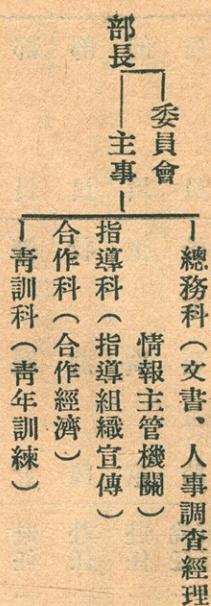 部長
委員會
主事
總務科（文書、人事調査經理
情報主管機關）
指導科（指導組織宣傳）
合作科（合作經濟）
靑訓科（靑年訓練）